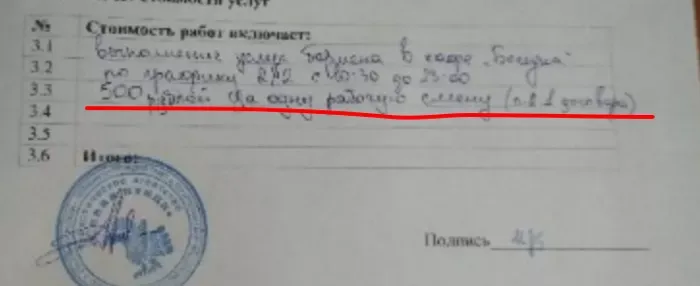 Стоимость услуг
№ Стоимость работ включает:
3.1 выполнение услуг Бармена в кафе „Беседка"
3.2 по графику 2/2 с 10:30 до 23:00
3.3 500 рублей за одну рабочую смену (п.в 1 договора)
3.4
3.5
3.6 Итого:
Подпись